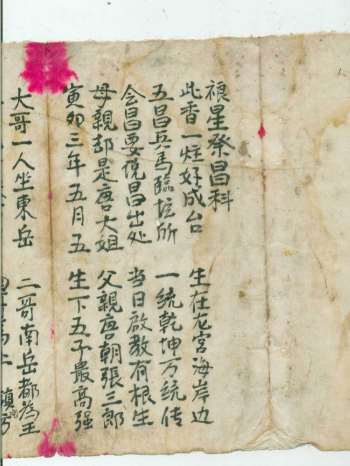 禳星祭昌科
此香一炷好成台 生在龙宮海岸边
五昌兵馬臨坛所 一統乾坤万統传
会昌要说昌出处 当日啟教有根生
母親却是唐大姐 父親唐朝張三郎
寅卯三年五月五 生下五子最高强
大哥一人坐東岳 二哥南岳都為王